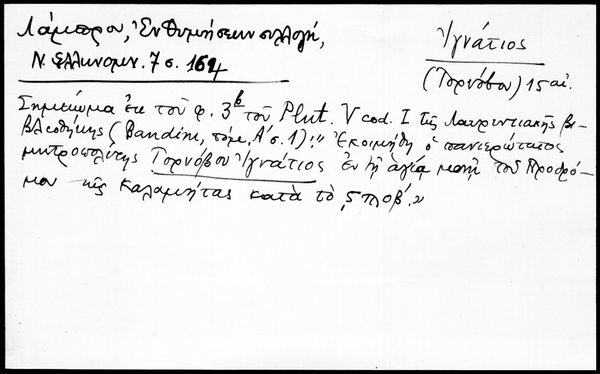 Λάμπρου, Ἐνθυμήσεων συλλογή,
Ν. Ἑλληνομν. 7 σ. 164
Ἰγνάτιος
(Τορνόβου) 15 αἰ.
Σημείωμα ἐκ τοῦ φ. 3b τοῦ Plut. V cod. I τῆς Λαυρεντιακῆς βι-
βλιοθήκης (Bandini, τόμ. Α' σ. 1): "Ἐκοιμήθη ὁ πανιερώτατος
μητροπολίτης Τορνόβου Ἰγνάτιος ἐν τῇ ἁγίᾳ μονῇ τοῦ Προδρό-
μου τῆς καλαμητας κατὰ τὸ ͵ςϡοβ'."